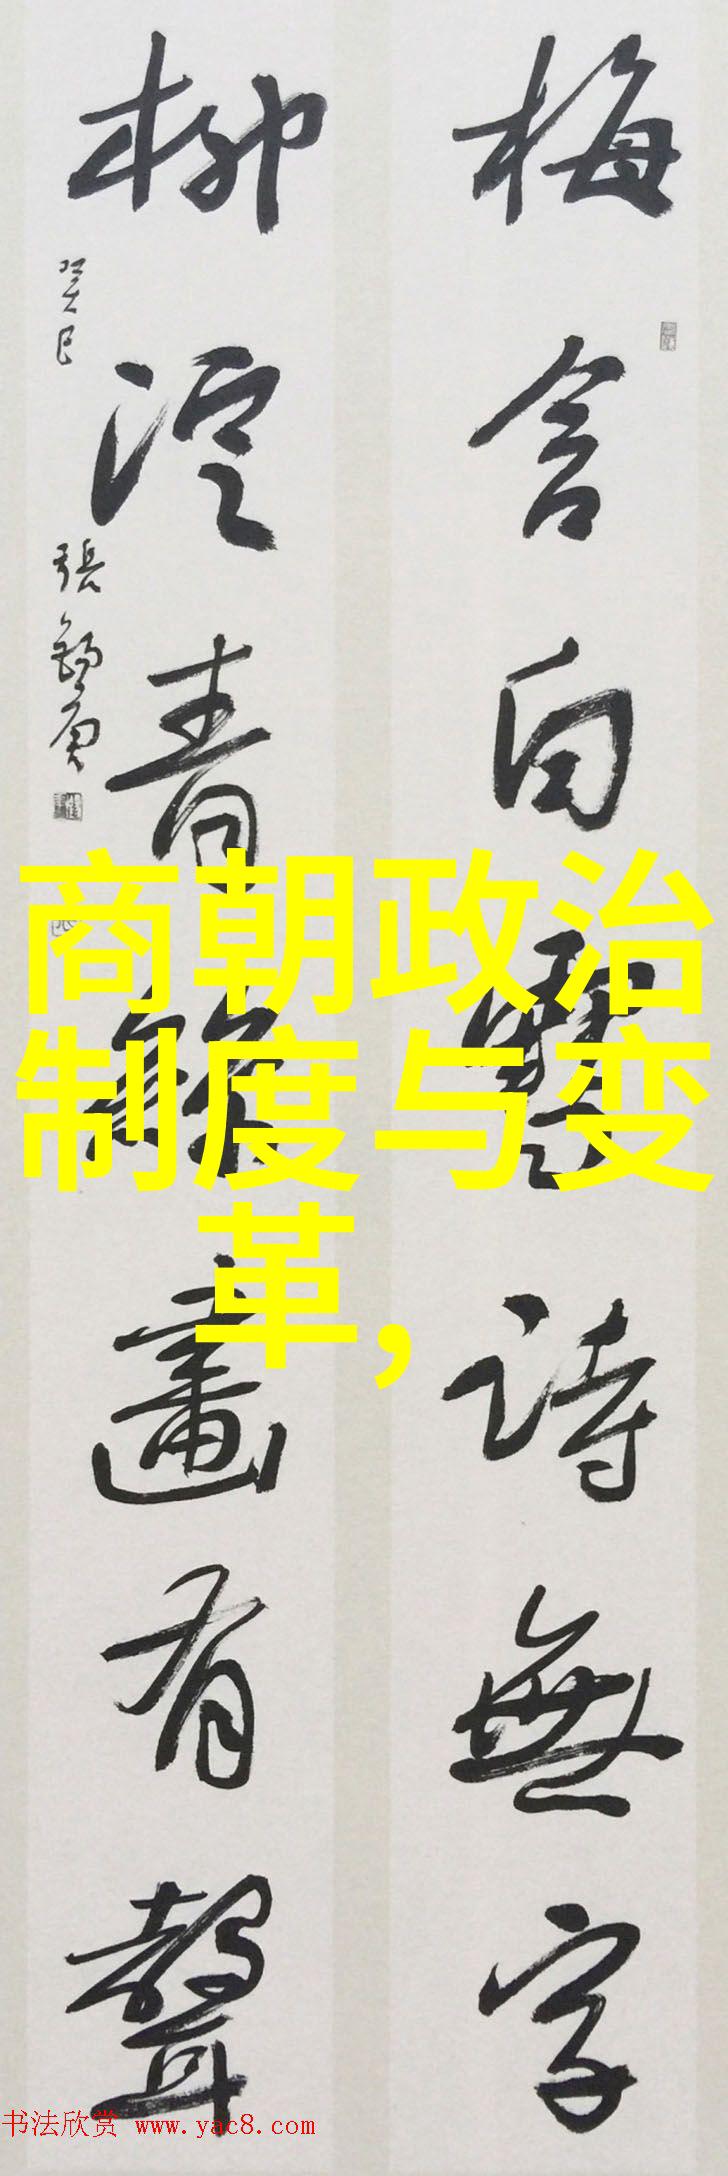 梅含白雪詩無字
柳澱青綠畫有聲
癸巳
張錫庚
商朝政治
制度与变
革,
书法欣赏 www.yac8.com